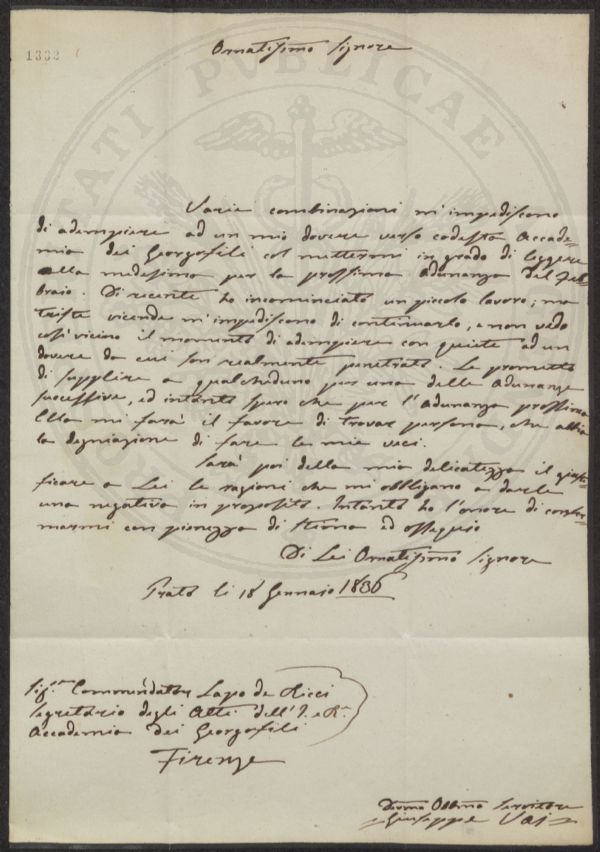 1332
Ornatissimo Signore
Varie combinazioni m'impediscono
di adempiere ad un mio dovere verso codesta Accade-
mia dei Georgofili col mettermi in grado di leggere
alla medesima per la prossima Adunanza del Feb
braio. Di recente ho incominciato un piccolo lavoro; ma
triste vicende m'impediscono di continuarlo, e non vedo
così vicino il momento di adempiere con quiete ad un
dovere da cui son realmente penetrato. Le prometto
di supplire a qualcheduno per una delle Adunanze
successive, ed intanto spero che per l'Adunanza prossima
Ella mi farà il favore di trovar persona, che abbia
la degnazione di fare le mie veci.
Sarà poi della mia delicatezza il giusti-
ficare a Lei le ragioni che mi obbligano a darle
una negativa in proposito. Intanto ho l'onore di confer-
marmi con pienezza di stima ed ossequio
Di Lei Ornatissimo Signore
Prato li 18 Gennaio 1836
Sigr. Commendator Lapo de Ricci
Segretario degli Atti dell'I. e R.
Accademia dei Georgofili
Firenze
Devmo Obbmo Servitore
Giuseppe Vai
TATI PUBLICAE